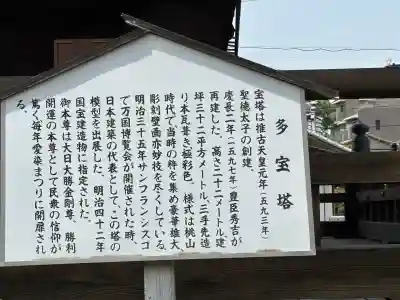 多宝塔
宝塔は推古天皇元年（五九三年）
聖徳太子の創建。
慶長二年（一五九七年）豊臣秀吉が
再建した。高さ二十二メートル建
坪三十二平方メートル、三手先造
り本瓦葺き極彩色。様式は桃山
時代で当時の粋を集め豪華雄大
彫刻壁画亦妙技を尽くしている。
明治三十五年サンフランシスコ
で万国博覧会が開催された時、
日本建築の代表として、この塔の
模型を出展した。明治四十二年
国宝建造物に指定された。
御本尊は大日大勝金剛尊、勝利
開運の本尊として民衆の信仰が
篤く毎年愛染まつりに開扉され
る。